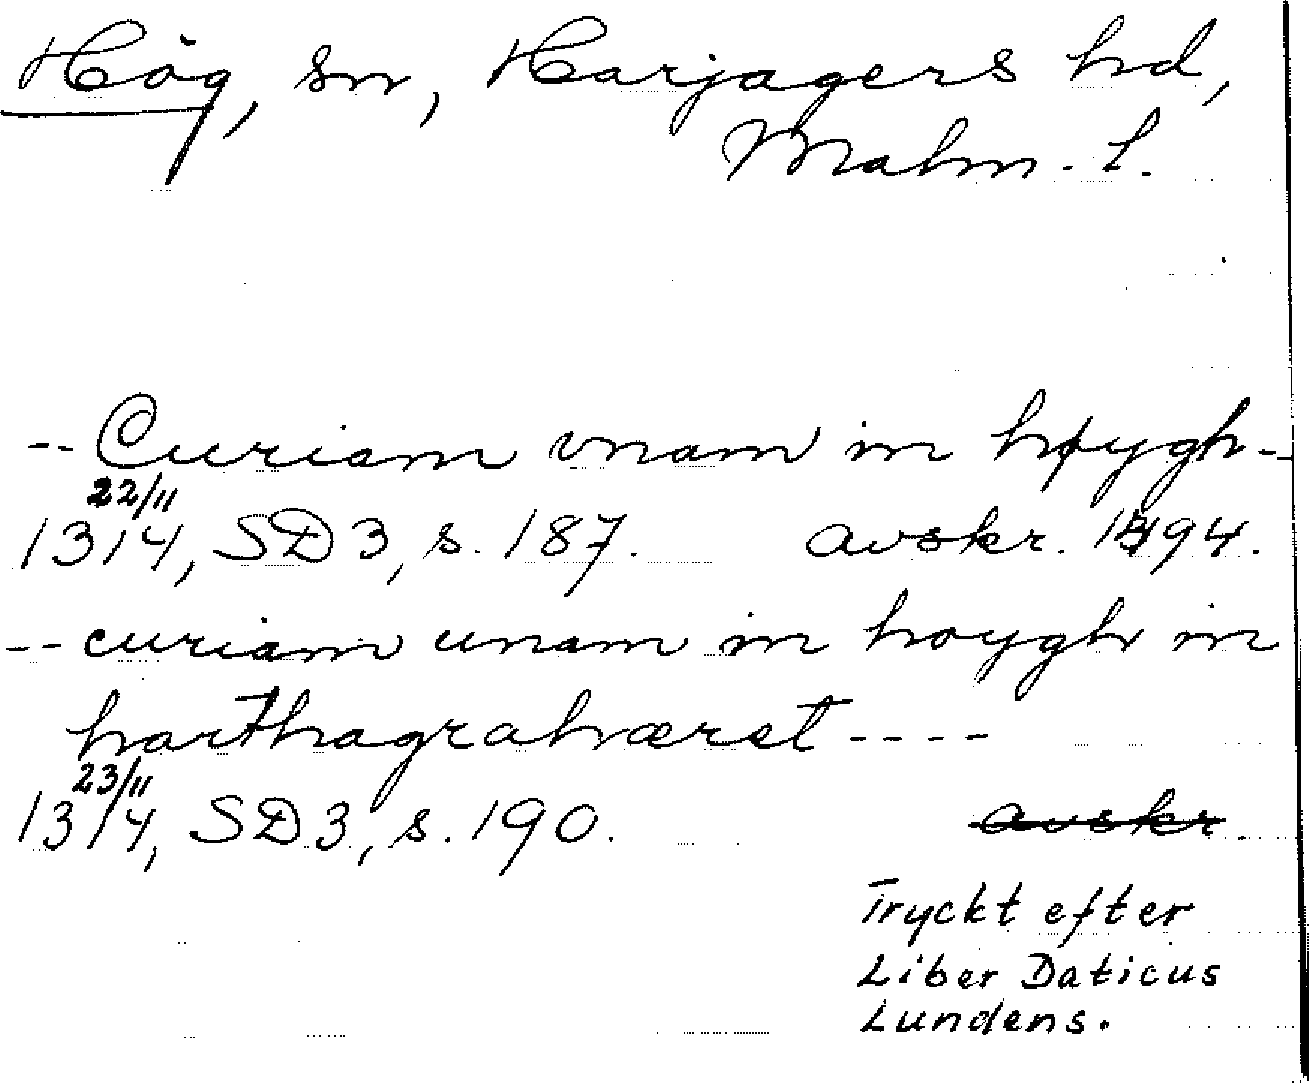 Hög, sn, Harjagers hd,
Malm. l.
-- Curiam vnam in høygh--
22/11
1314, SD 3, s. 187. avskr. 1494.
-- curiam unam in hoygh in
harthagrahæret ----
23/11
1314, SD 3, s. 190. avskr.
Tryckt efter
Liber Daticus
Lundens.